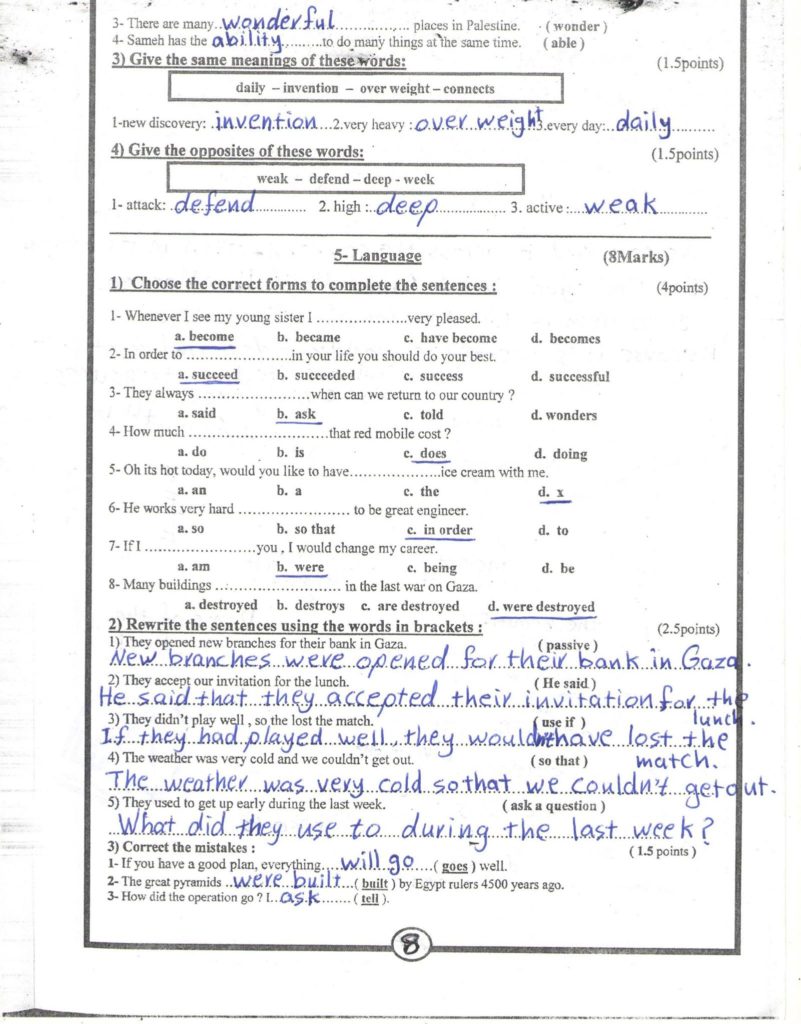 3- There are many..wonderful................., places in Palestine. ( wonder )
4- Sameh has the ability...........to do many things at the same time. ( able )
3) Give the same meanings of these words: (1.5points)
daily – invention – over weight – connects
1-new discovery: .invention...2.very heavy : over weight 3.every day:..daily...........
4) Give the opposites of these words: (1.5points)
weak – defend – deep - week
1- attack: .defend.............. 2. high :..deep.................... 3. active :....weak...............
5- Language (8Marks)
1) Choose the correct forms to complete the sentences : (4points)
1- Whenever I see my young sister I .....................very pleased.
a. become b. became c. have become d. becomes
2- In order to ........................in your life you should do your best.
a. succeed b. succeeded c. success d. successful
3- They always ..........................when can we return to our country ?
a. said b. ask c. told d. wonders
4- How much ................................that red mobile cost ?
a. do b. is c. does d. doing
5- Oh its hot today, would you like to have.....................ice cream with me.
a. an b. a c. the d. x
6- He works very hard .......................... to be great engineer.
a. so b. so that c. in order d. to
7- If I ..........................you , I would change my career.
a. am b. were c. being d. be
8- Many buildings ............................. in the last war on Gaza.
a. destroyed b. destroys c. are destroyed d. were destroyed
2) Rewrite the sentences using the words in brackets : (2.5points)
1) They opened new branches for their bank in Gaza. ( passive )
New branches were opened for their bank in Gaza.
2) They accept our invitation for the lunch. ( He said )
He said that they accepted their invitation for the lunch.
3) They didn't play well , so the lost the match. ( use if )
If they had played well, they wouldn't have lost the match.
4) The weather was very cold and we couldn't get out. ( so that )
The weather was very cold so that we couldn't get out.
5) They used to get up early during the last week. ( ask a question )
What did they use to during the last week?
3) Correct the mistakes : ( 1.5 points )
1- If you have a good plan, everything....will go....( goes ) well.
2- The great pyramids ..were built...( built ) by Egypt rulers 4500 years ago.
3- How did the operation go ? I...ask........ ( tell ).
8